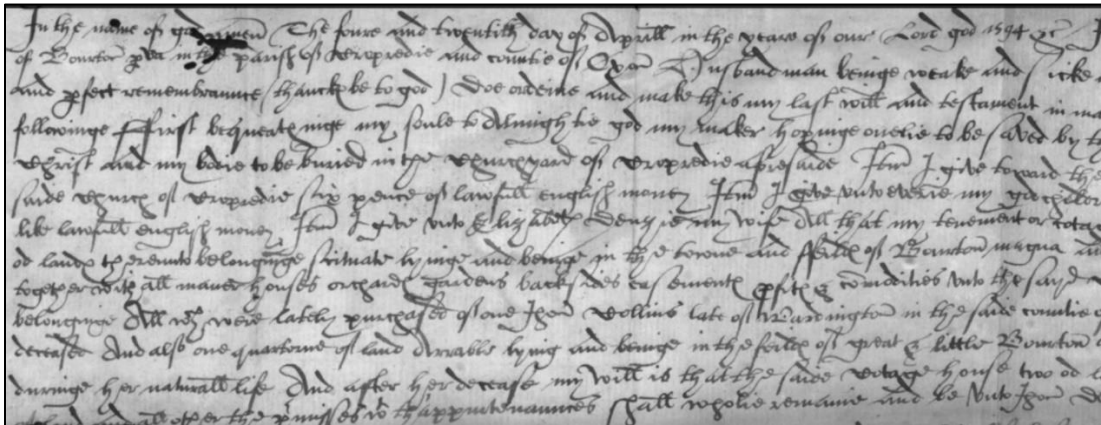 In the name of god Amen The foure and twentith day of Aprill in the yeare of our Lord god 1594 &c I
of Bourton pva in the parish of Cropredie and countie of Oxon Husbandman beinge weake and sicke
and pfect remembraunce (thanckx be to god) doe ordeine and make this my last will and testament in ma
followinge ffirst bequeathinge my soule to Almightie god my maker hopinge onelie to be saved by th
Christ and my bodie to be buried in the Churchyard of Cropredie aforesaide Itm I give toward the
saide Church of Cropredie six pence of lawfull english money Itm I give unto everie my godchildr
like lawfull english money Itm I give unto Elizabeth my wife All that my tenement or cotag
od landx thereunto belonginge scituate lyinge and beinge in the towne and ffeildx of Bourton magna an
together with all maner houses orchardx gardens backsides easementx pfitx & comodities unto the sayd
belonginge All wch were lately purchased of one Jhon Collins late of Wardington in the saide countie o
deceased And also one quarterne of land arrable lying and beinge in the feildx of great & little Bourton
duringe her naturall life And after her decease my will is that the saide Cotage house two od
land and all other the pmisses wth thappurtenaunces shall wholie remaine and be unto Jhon